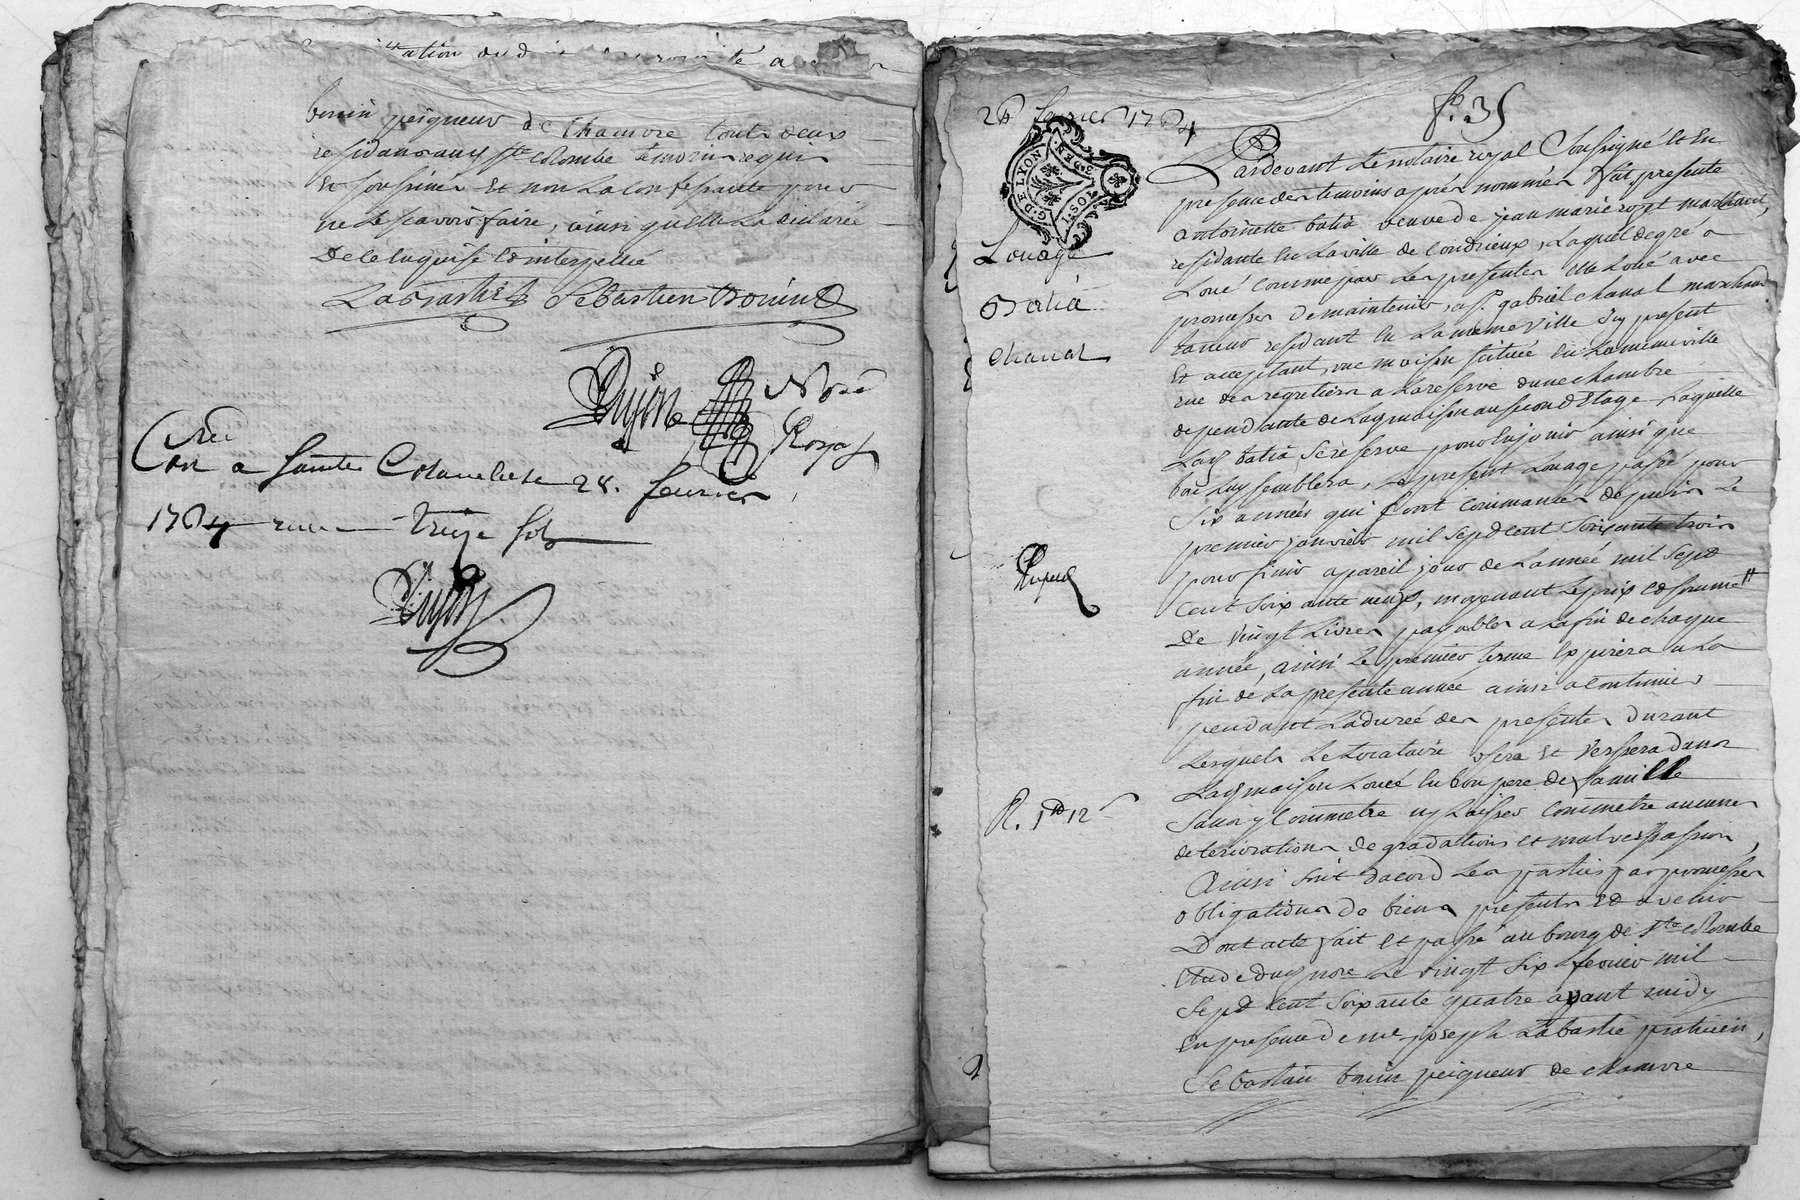 bonin peigneur de Chanvre touts deux
residants aud Ste Colombe temoins requis
Et soussignés Et non La confessante pour
ne Le scavoir faire, ainsi quelle La declarée
De ce Enquise Et interpellée
Labastie Sebastien Bonin
Dujon Nore
Royal
Con a Sainte Colombe Le 28. fevrier
1764 treize sols
Dujon
26 fevrier 1764
fo. 35
G. DE LYON
Louage
Batiá
Chanal
Pardevant Le notaire royal Soussigné Et En
presence des temoins aprés nommés fut presente
antoinette batiá veuve de jean marie rozet marchand,
residante En La ville de Condrieux, Laquel de gré a
Loué comme par Les presentes Elle Loue avec
promesses de maintenir, a sr. gabriel chanal marchand
taneur residant En La meme ville Icy present
Et acceptant, une maison scituée En La meme ville
rue des regretiers a La reserve dune chambre
dependante de Lad maison au second Etage Laquelle
Lad batiá se reserve pour En jouir ainsi que
bon Luy semblera, Le present Louage passé pour
Six années qui sont commancées depuis Le
premier janvier mil Sept cent Soixante trois
pour finir a pareil jour de Lannée mil Sept
Cent Soixante neuf, moyenant Le prix Et somme
De vingt Livres payables a La fin de chaque
année, ainsi Le premier terme Expirera a La
fin de La presente année ainsi a Continuer
pendant La durée des presentes Durant
Lesquels Le Locataire usera Et Versera dans
Lad maison Louée En bon pere de famille
Sans y Commetre ny Laisser Commetre aucunes
deteriorations degradations Et malversations,
Ainsi Sont dacord Les parties par promesses
obligations de biens presents Et avenir
Dont acte fait Et passé au bourg de Ste Colombe
Etude dud nore Le vingt Six fevrier mil
Sept Cent Soixante quatre avant midy
En presence de me joseph Labastie praticien,
Sebastien bonin peigneur de chanvre
R. 12 s